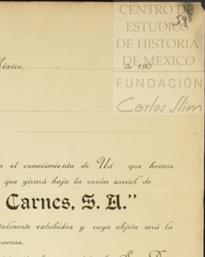 CENTRO DE
ESTUDIOS
DE HISTORIA
DE MEXICO
FUNDACIÓN
Carlos Slim
59
México, de 190
el conocimiento de Ud que hemos
que girará bajo la razón social de
Carnes, S. A."
talmente exhibidos y cuyo objeto será la